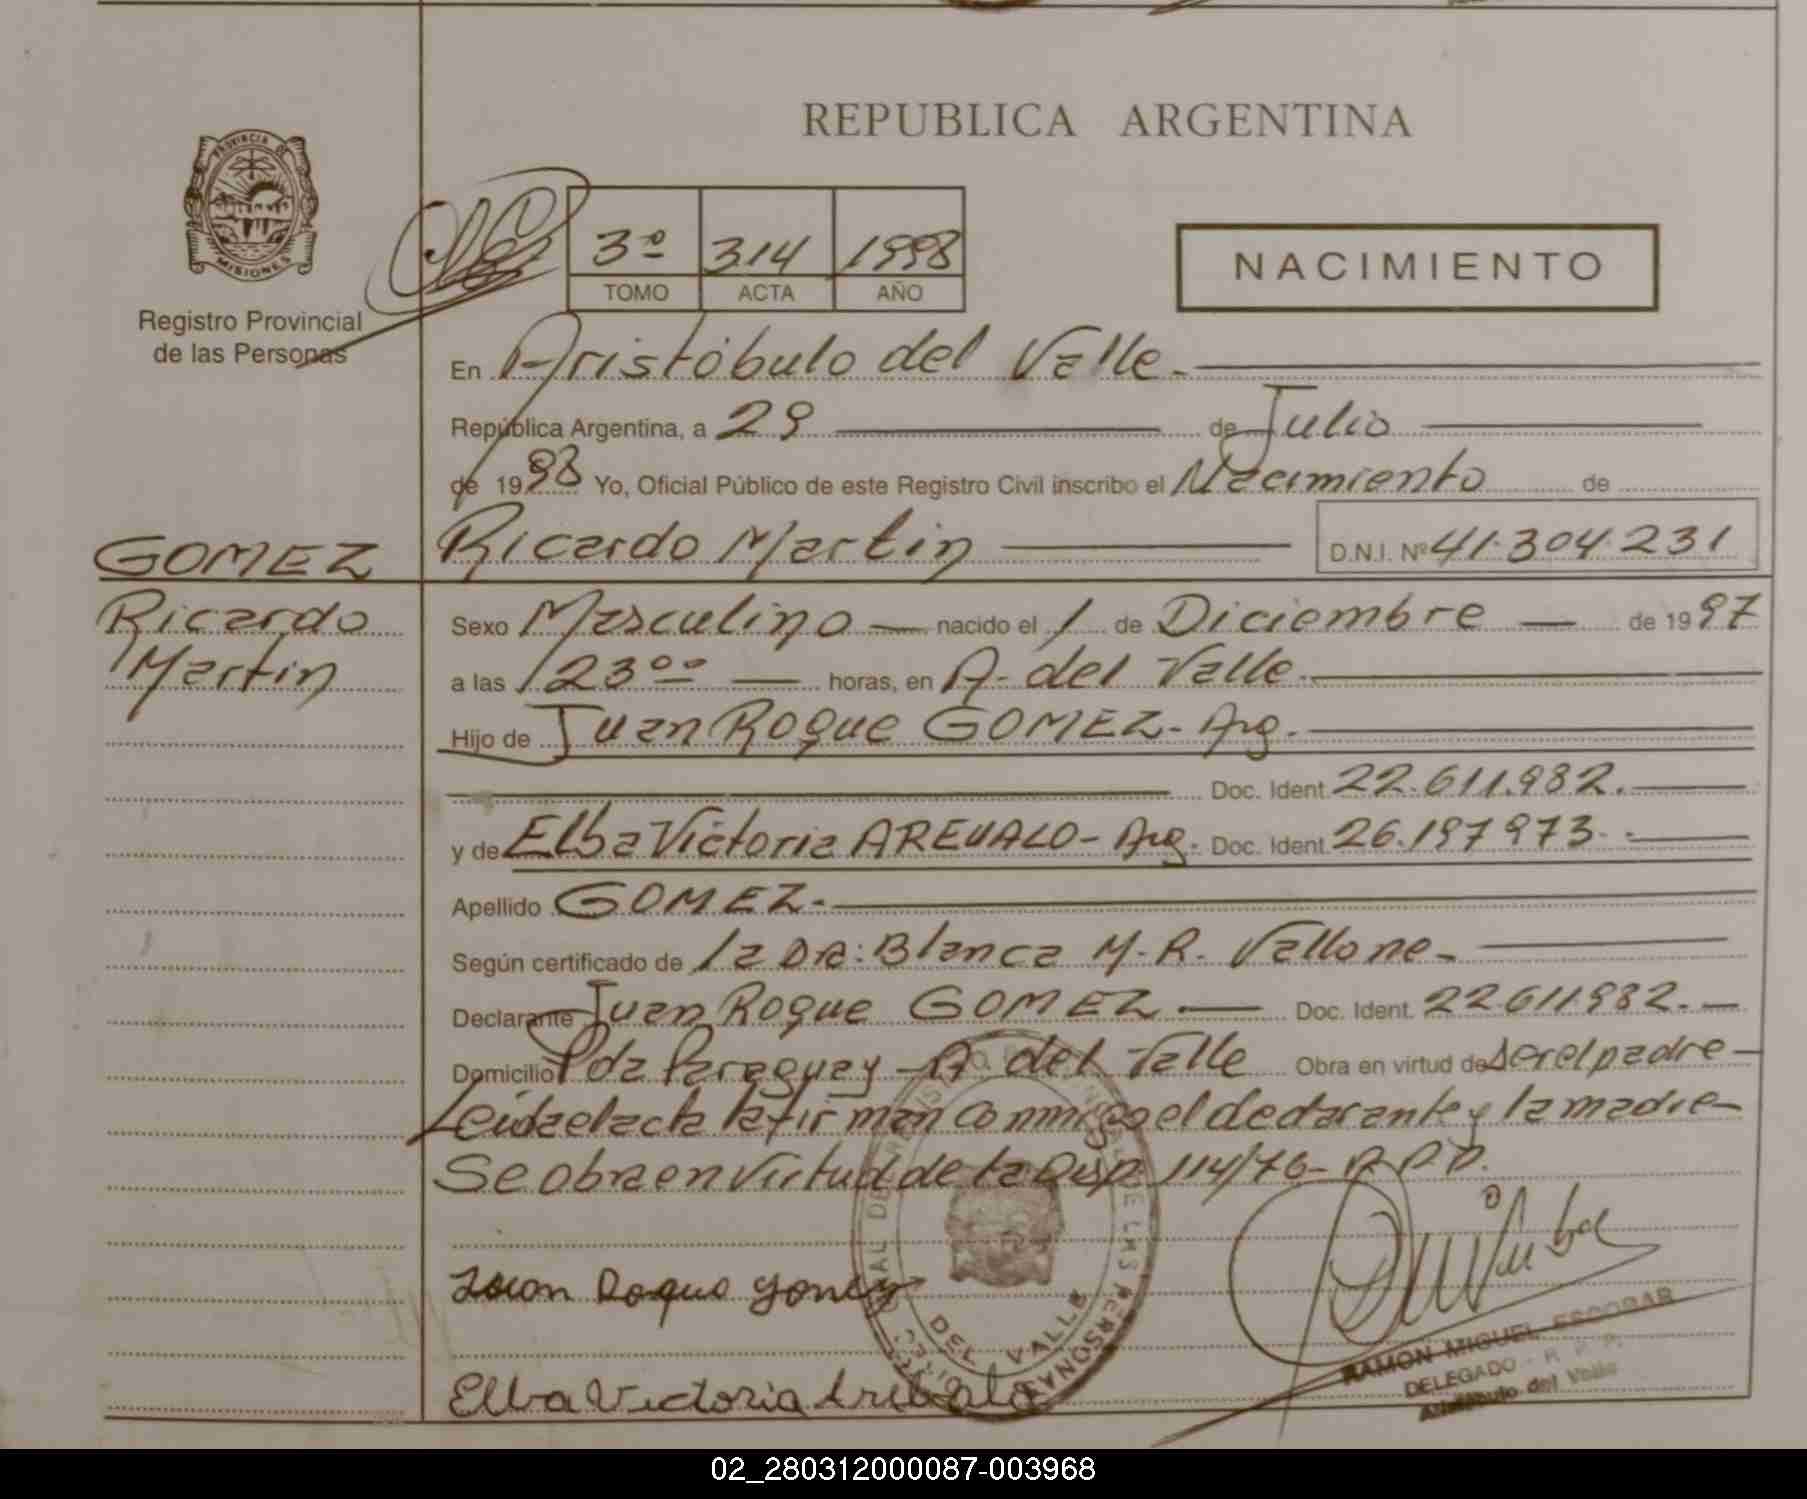 REPUBLICA ARGENTINA
PROVINCIA DE MISIONES
Registro Provincial
de las Personas
3º 314 1998
TOMO ACTA AÑO
NACIMIENTO
En Aristóbulo del Valle.
República Argentina, a 29 de Julio
de 1998 Yo, Oficial Público de este Registro Civil inscribo el Nacimiento de
GOMEZ Ricardo Martin D.N.I. Nº 41.304.231
Ricardo
Martin
Sexo Masculino nacido el 1 de Diciembre de 1997
a las 23ºº horas, en A. del Valle.
Hijo de Juan Roque GOMEZ - Arg.
Doc. Ident. 22.611.982.
y de Elba Victoria AREVALO - Arg. Doc. Ident. 26.197.973.
Apellido GOMEZ.
Según certificado de la DRA: Blanca M. R. Vallone
Declarante Juan Roque GOMEZ Doc. Ident. 22.611.982.
Domicilio Pda Paraguay - A del Valle Obra en virtud de ser el padre
Leida el acta la firman conmigo el declarante y la madre
Se obra en virtud de la Disp. 114/76 - R.P.P.
Juan Roque Gomez
Elba Victoria Arebalo
DEL VALLE
RAMON MIGUEL ESCOBAR
DELEGADO - R. P. P.
Aristóbulo del Valle
02_280312000087-003968